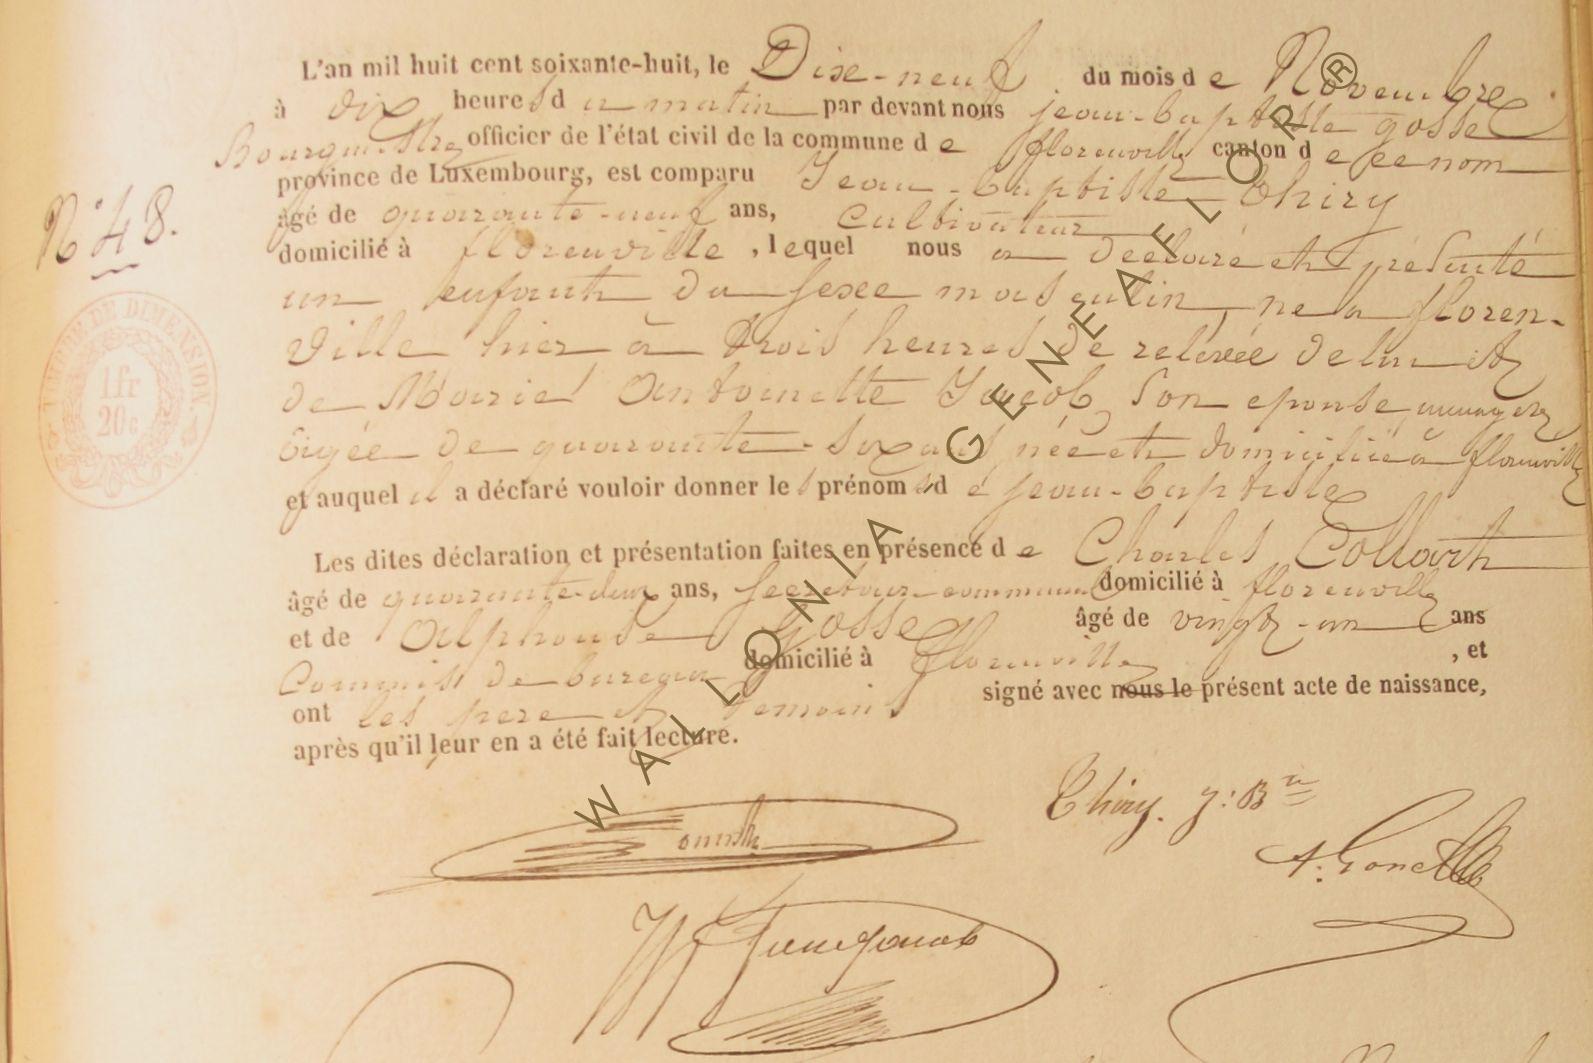 L'an mil huit cent soixante-huit, le Dixe-neuf du mois de Novembre
à dix heures du matin par devant nous jean-baptiste gosse
Bourgmestre officier de l'état civil de la commune de florenville canton de ce nom
province de Luxembourg, est comparu Jean-baptiste Thiry
âgé de quarante-neuf ans, Cultivateur
N° 48.
domicilié à florenville, lequel nous a déclaré et présenté
un enfant du sexe masculin, né à floren-
ville hier à trois heures de relevée de lui et
de Marie Antoinette Jacob, son epouse menagere
âgée de quarante-six ans née et domiciliée à florenville
et auquel il a déclaré vouloir donner les prénoms de jean-baptiste
Les dites déclaration et présentation faites en présence de Charles Collart
âgé de quarante-deux ans, secretaire communal domicilié à florenville
et de Alphonse Gosse âgé de vingt-un ans
Commis de bureau domicilié à florenville, et
ont les père et temoins signé avec nous le présent acte de naissance,
après qu'il leur en a été fait lecture.
Thiry. J: Bte
TIMBRE DE DIMENSION.
1 fr
20 c
WALLONIA GENEAFLOR ®